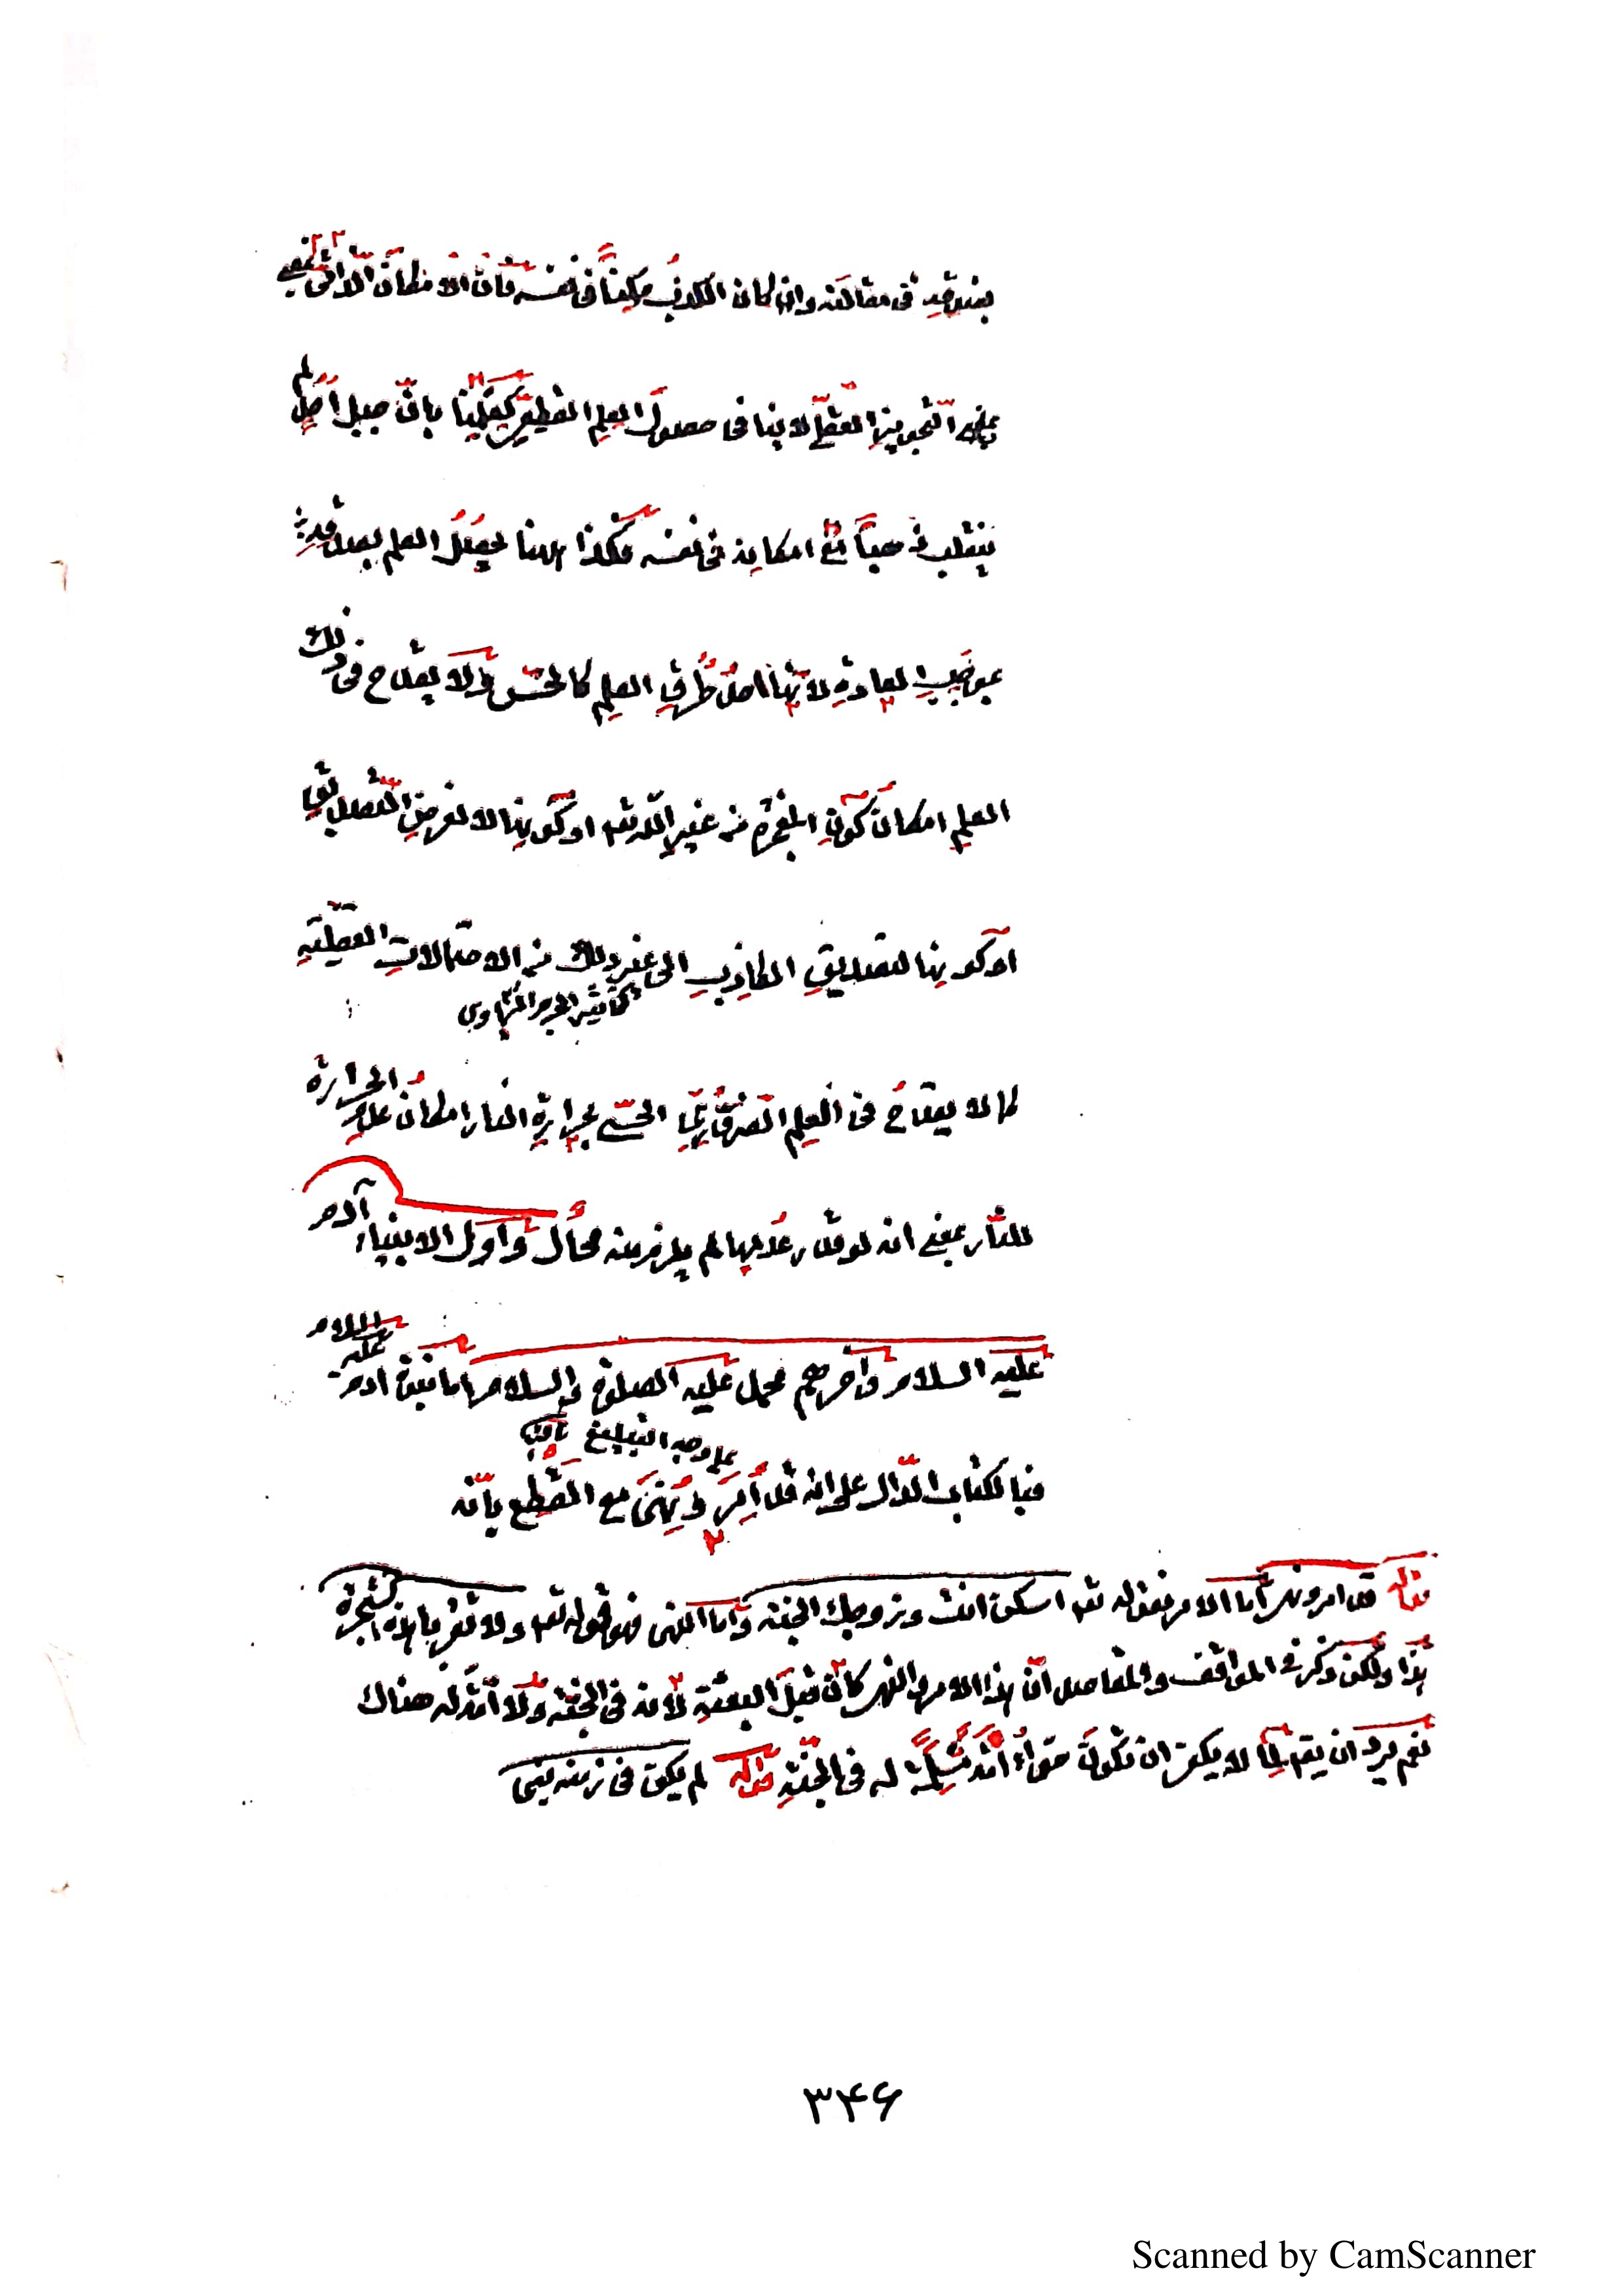 بصدقه فى مقالته وان كان الكذب ممكنا فى نفسه فان الامكان الذاتى بمعنى
التجويز العقلى لا ينافى حصول العلم القطعى كعلمنا بان جبل احد لم
ينقلب ذهبا مع امكانه فى نفسه فكذا ههنا يحصل العلم بصدقه
بموجب العادة لانها احد طرق العلم كالحس ولا يقدح فى ذلك
العلم امكان كون المعجزة من غير الله تع او كونها لا لغرض التصديق
او كونها لتصديق الكاذب الى غير ذلك من الاحتمالات العقلية
كما لا يقدح فى العلم الضرورى الحسى بحرارة النار امكان عدم الحرارة
للنار بمعنى انه لو قدر عدمها لم يلزم منه محال واول الانبياء آدم
عليه السلام وآخرهم محمد عليه الصلوة والسلام اما نبوة ادم عليه السلام
على وجه التبليغ
فبالكتاب الدال على انه قد أمر ونهى مع القطع بانه
قوله قد امر ونهى اما الامر فقوله تع اسكن انت وزوجك الجنة واما النهى فهو قوله تع ولا تقربا هذه الشجرة
هذا ولكن ذكر فى المواقف والمقاصد ان هذا الامر والنهى كان قبل البعثة لانه فى الجنة ولا امة له هناك
نعم يرد ان يقم لم لا يكفى ان تكون حواء امة له فى الجنة قوله لم يكن فى زمنه نبى
۳۴۶
Scanned by CamScanner